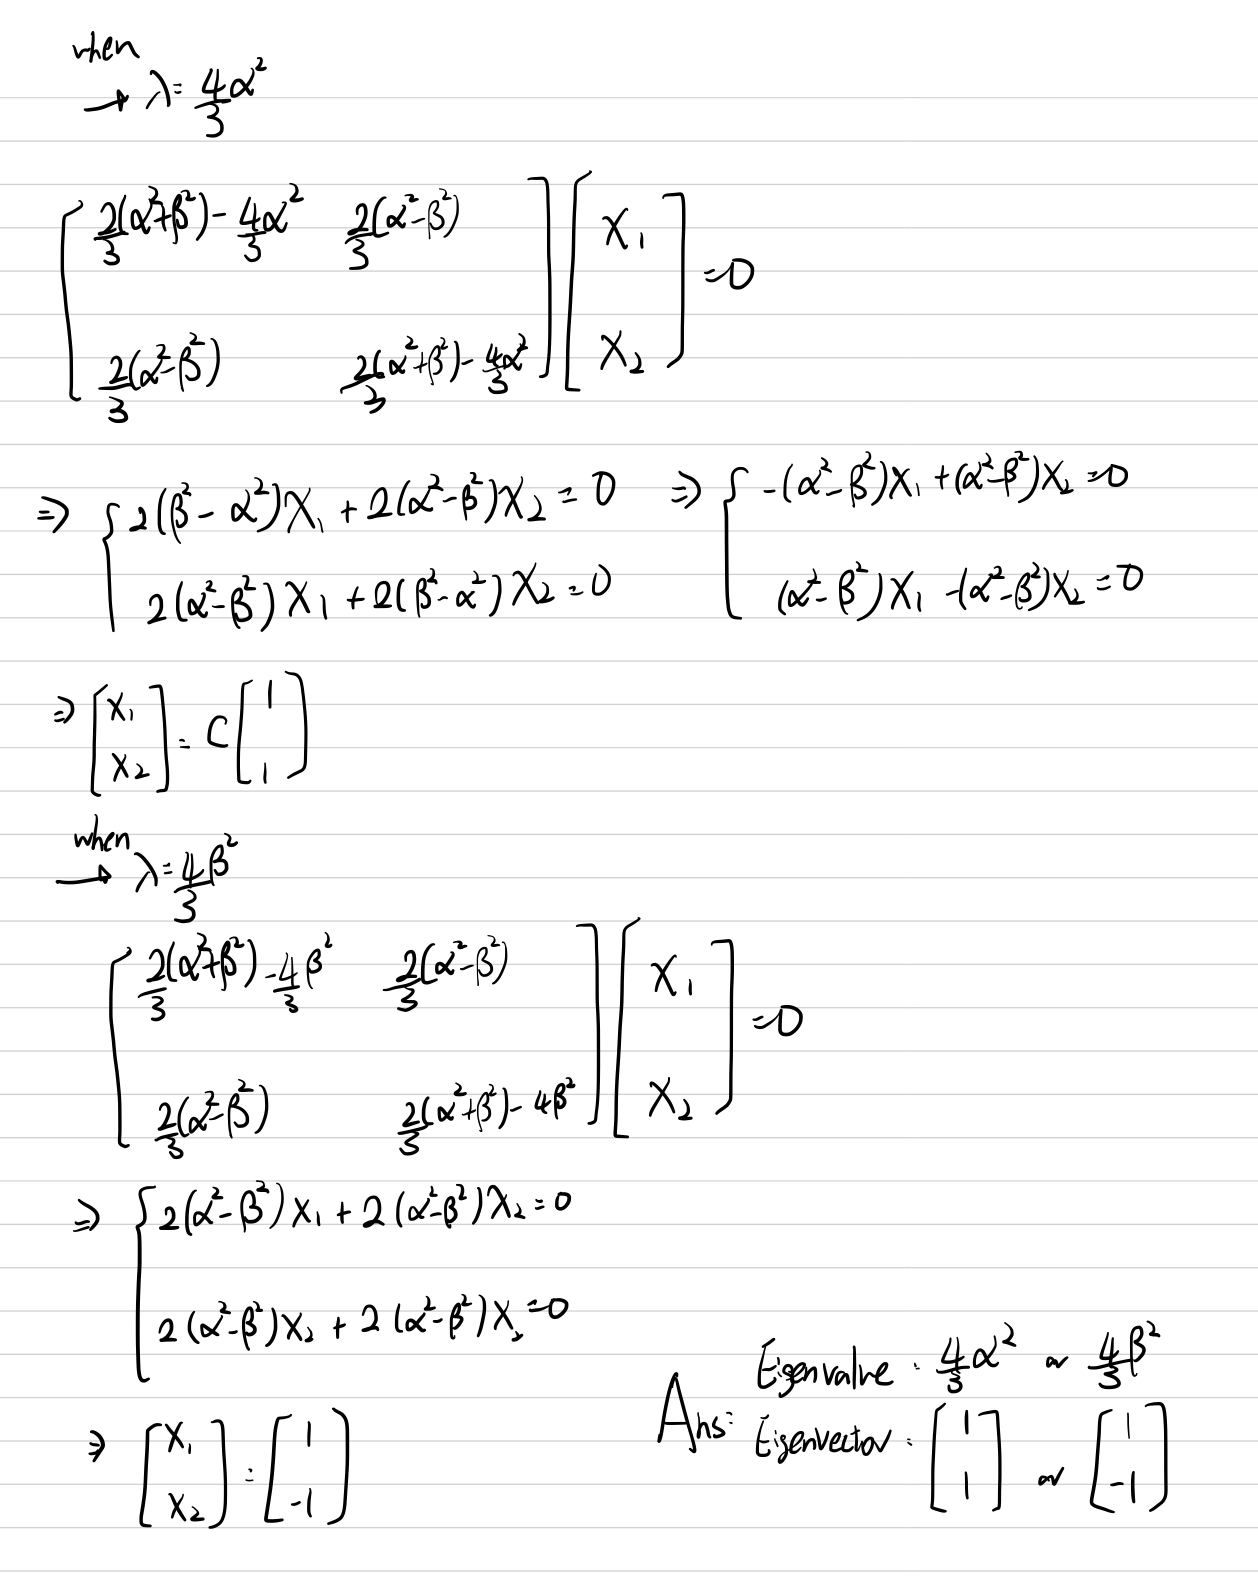 when
→ λ = 4/3 α²
[ 2/3(α²+β²) - 4/3 α²   2/3(α²-β²) ] [ X₁ ] = 0
[ 2/3(α²-β²)   2/3(α²+β²) - 4/3 α² ] [ X₂ ]
⇒ { 2(β² - α²)X₁ + 2(α²-β²)X₂ = 0   ⇒ { -(α²-β²)X₁ + (α²-β²)X₂ = 0
2(α²-β²)X₁ + 2(β²-α²)X₂ = 0   (α²-β²)X₁ - (α²-β²)X₂ = 0
⇒ [ X₁ ] = C [ 1 ]
[ X₂ ] [ 1 ]
when
→ λ = 4/3 β²
[ 2/3(α²+β²) - 4/3 β²   2/3(α²-β²) ] [ X₁ ] = 0
[ 2/3(α²-β²)   2/3(α²+β²) - 4β² ] [ X₂ ]
⇒ { 2(α²-β²)X₁ + 2(α²-β²)X₂ = 0
2(α²-β²)X₂ + 2(α²-β²)X₂ = 0
⇒ [ X₁ ] = [ 1 ]
[ X₂ ] [ -1 ]
Ans:
Eigenvalue : 4/3 α² or 4/3 β²
Eigenvector : [ 1 ] or [ 1 ]
[ 1 ] [ -1 ]